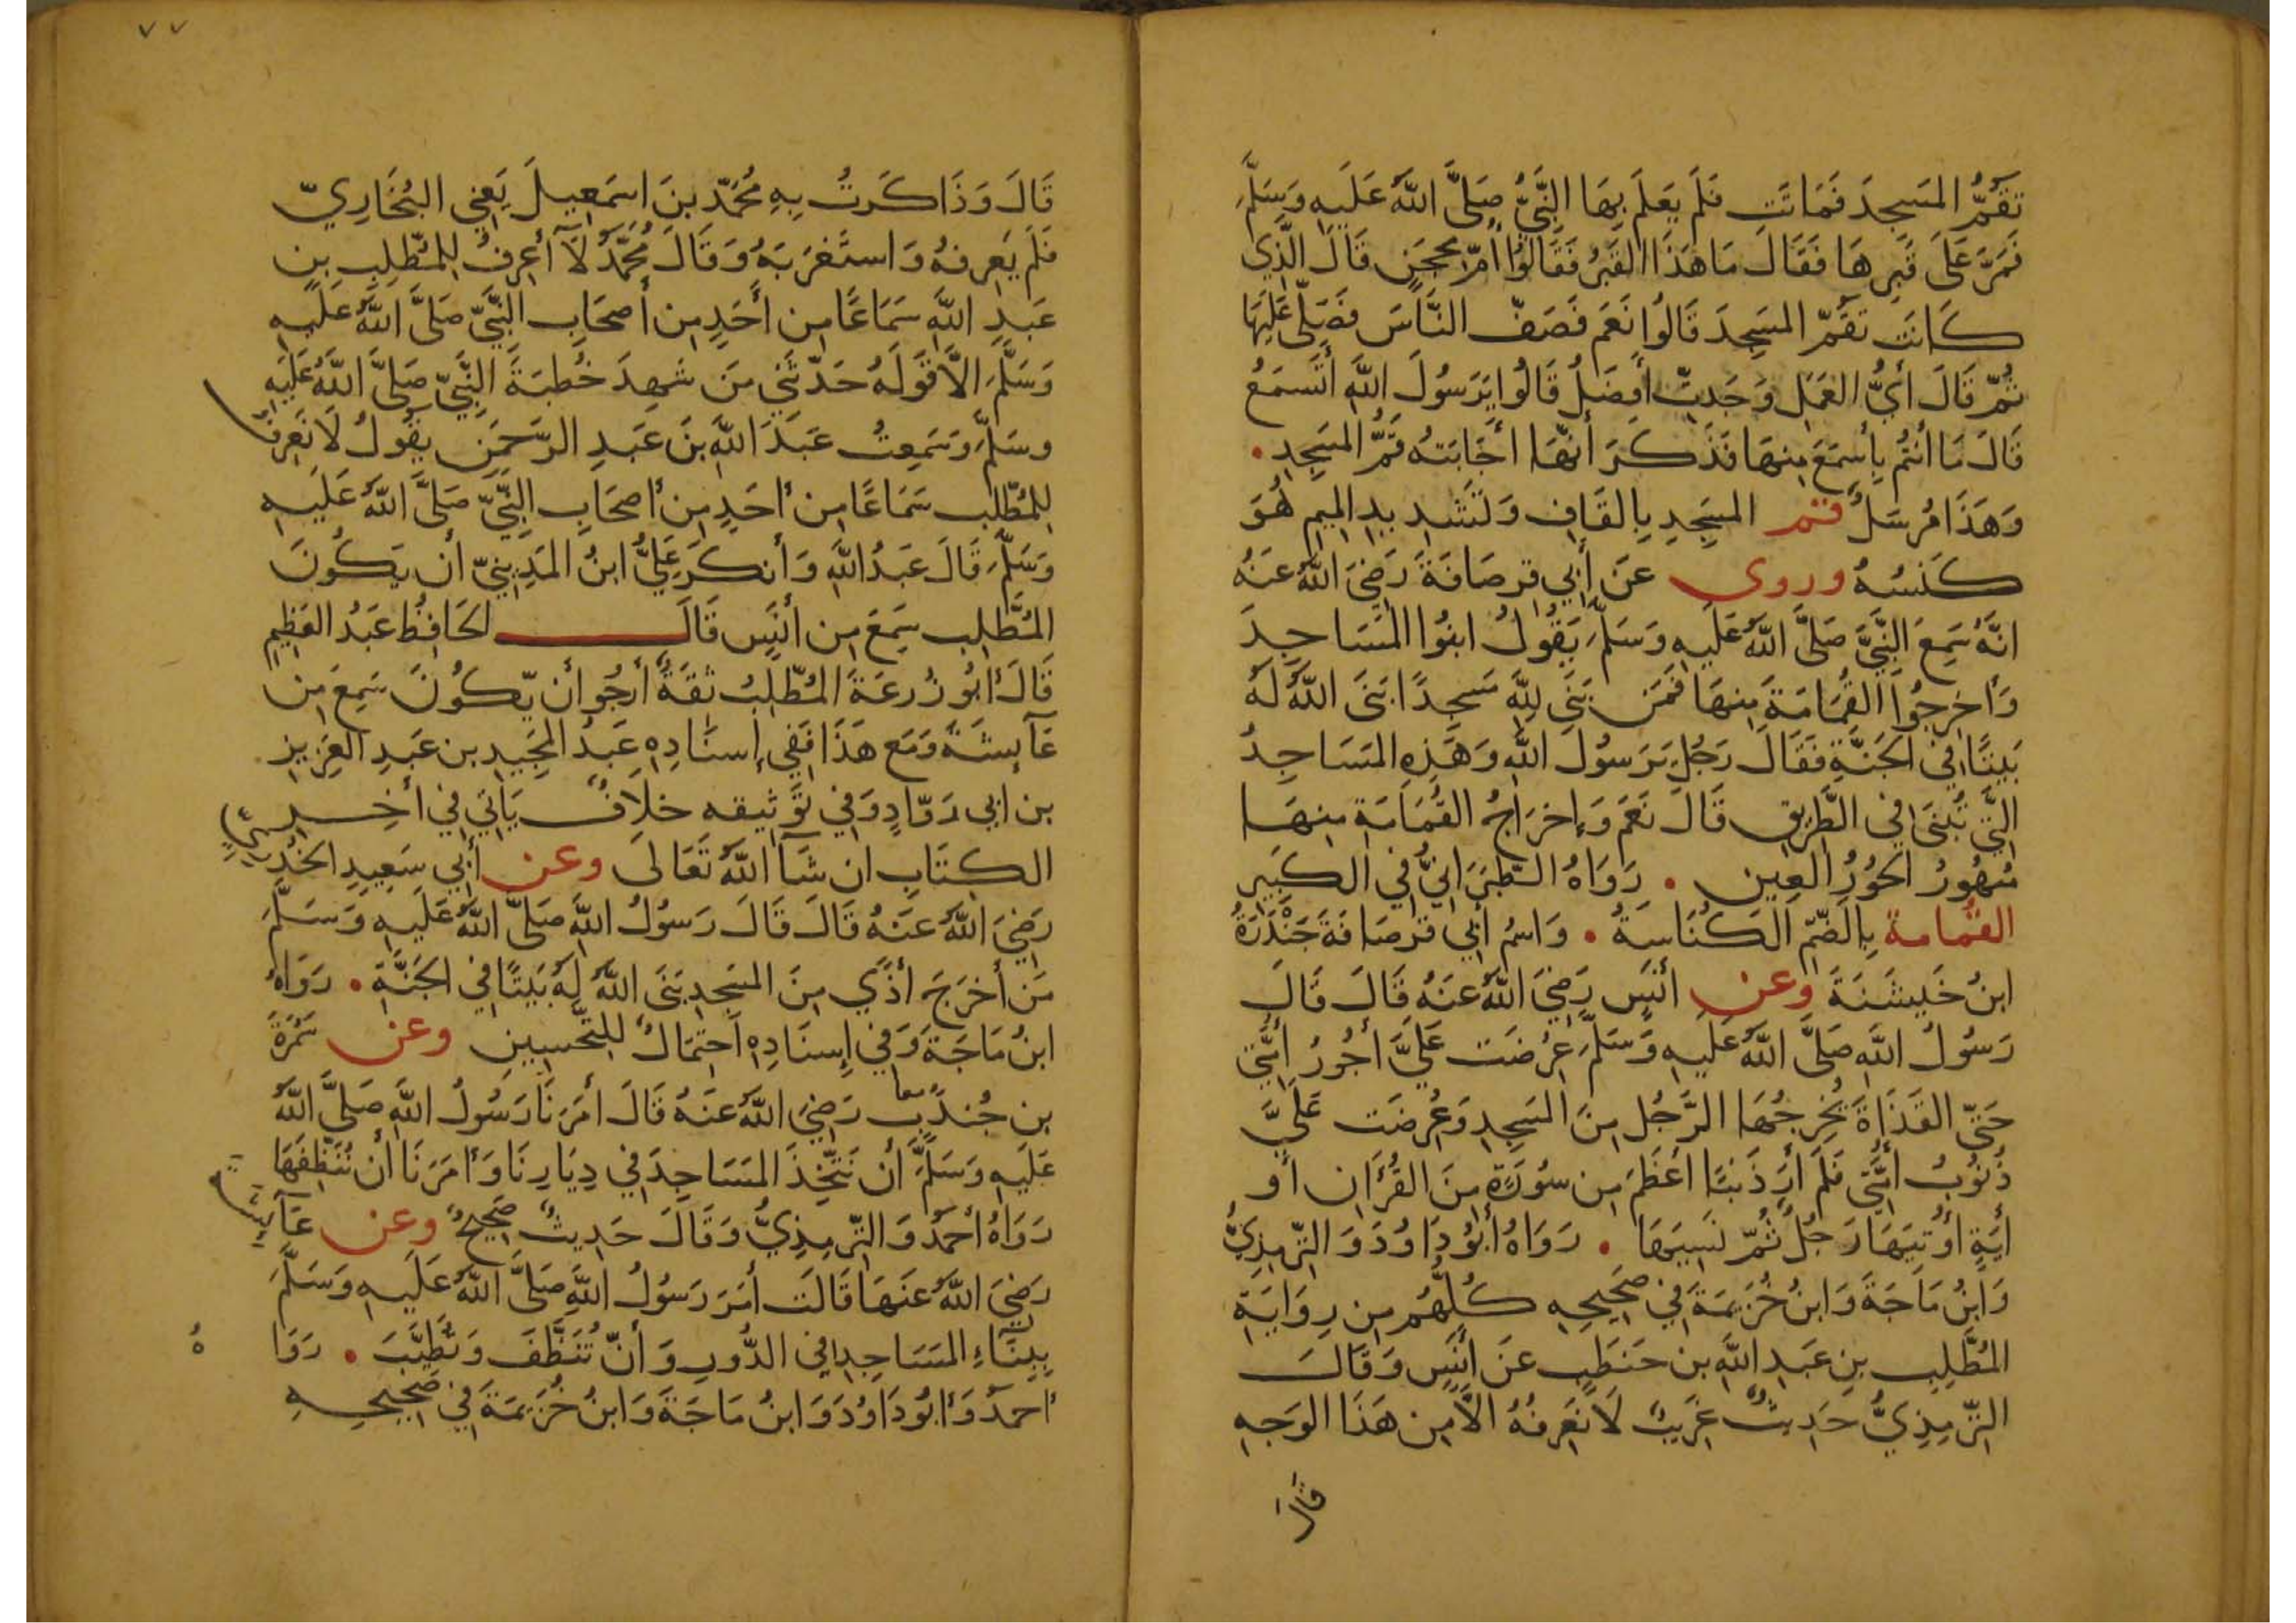 تَقُمُّ المَسجِدَ فَمَاتَت فَلَم يَعلَم بِهَا النَّبِيُّ صَلَّى اللَّهُ عَلَيهِ وَسَلَّمَ
فَمَرَّ عَلَى قَبرِهَا فَقَالَ مَا هَذَا القَبرُ فَقَالُوا أُمّ مِحجَنٍ قَالَ الَّذِى
كَانَت تَقُمّ المَسجِدَ قَالُوا نَعَم فَصَفّ النَّاسَ فَصَلَّى عَلَيهَا
ثُمّ قَالَ أَيُّ العَمَلِ وَجَدتِّ أَفضَلُ قَالُوا يَرَسُولَ اللَّهِ أَتَسمَعُ
قَالَ مَا أَنتُم بِأَسمَعَ مِنهَا فَذَكَرَ أَنّهَا أَجَابَتهُ قَمُّ المَسجِدِ.
وَهَذَا مُرسَلٌ قم المسجِدِ بِالقَافِ وَتَشدِيدِ المِيمِ هُوَ
كَنسُهُ وروى عَن أَبِي قِرصَافَةَ رَضِيَ اللَّهُ عَنهُ
انَّهُ سَمِعَ النَّبِيَّ صَلَّى اللَّهُ عَلَيهِ وَسَلَّمَ يَقُولُ ابنُوا المَسَاجِدَ
وَأَخرِجُوا القُمَامَةَ مِنهَا فَمَن بَنَى لِلَّهِ مَسجِدًا بَنَى اللَّهُ لَهُ
بَيتًا فِي الجَنَّةِ فَقَالَ رَجُلٌ يَرَسُولَ اللَّهِ وَهَذِهِ المَسَاجِدُ
الَّتِي تُبنَى فِي الطَّرِيقِ قَالَ نَعَم وَإِخرَاجُ القُمَامَةِ مِنهَا
مُهُورُ الحُورِ العِينِ. رَوَاهُ الطَّبَرَانِيُّ فِي الكَبِيرِ
القُمَامة بِالضّمّ الكُنَاسَةُ. وَاسمُ أَبِي قِرصَافَةَ جَندَرَةُ
ابنُ خَيشَنَةَ وَعن أَنَسٍ رَضِيَ اللَّهُ عَنهُ قَالَ قَالَ
رَسُولُ اللَّهِ صَلَّى اللَّهُ عَلَيهِ وَسَلَّمَ عُرِضَت عَلَيَّ أُجُورُ أُمَّتِي
حَتّى القَذَاةَ يُخرِجُهَا الرَّجُلُ مِنَ المَسجِدِ وَعُرِضَت عَلَيَّ
ذُنُوبُ أُمَّتِي فَلَم أَرَ ذَنبًا أَعظَمَ مِن سُورَةٍ مِنَ القُرَآنِ أَو
أَيَةٍ أُوتِيَهَا رَجُلٌ ثُمّ نَسِيَهَا. رَوَاهُ أَبُو دَاوُدَ وَالتِّرمِذِيُّ
وَابنُ مَاجَةَ وَابنُ خُزَيمَةَ فِي صَحِيحِهِ كُلُّهُم مِن رِوَايَةِ
المُطَّلِبِ بنِ عَبدِ اللَّهِ بنِ حَنطَبٍ عَن أَنَسٍ وَقَالَ
التِّرمِذِيُّ حَدِيثٌ غَرِيبٌ لَا نَعرِفُهُ الَّا مِن هَذَا الوَجهِ
قَالَ
٧٧
قَالَ وَذَاكَرتُ بِهِ مُحَمّدَ بنَ اسمَعِيلَ يَعنِي البُخَارِيّ
فَلَم يَعرِفهُ وَاستَغرَبَهُ وَقَالَ مُحَمَّدٌ لَا أَعرِفُ لِلمُطَّلِبِ بنِ
عَبدِ اللَّهِ سَمَاعًا مِن أَحَدٍ مِن أَصحَابِ النَّبِيِّ صَلَّى اللَّهُ عَلَيهِ
وَسَلَّمَ الَّا قَولَهُ حَدّثَنِي مَن شَهِدَ خُطبَةَ النَّبِيّ صَلَّى اللَّهُ عَلَيهِ
وسَلَّمَ وَسَمِعتُ عَبدَ اللَّهِ بنَ عَبدِ الرَّحمَنِ يَقُولُ لَا نَعرِفُ
لِلمُطّلِبِ سَمَاعًا مِن أَحَدٍ مِن أَصحَابِ النَّبِيّ صَلَّى اللَّهُ عَلَيهِ
وَسَلَّمَ قَالَ عَبدُ اللَّهِ وَأَنكَرَ عَلِيُّ ابنُ المَدِينِيّ أَن يَكُونَ
المُطَّلِبِ سَمِعَ مِن أَنَسٍ قَالَ لحَافِظُ عَبدُ العَظِيمِ
قَالَ أَبُو زُرعَةَ المُطّلِبُ ثِقَةٌ أَرجُو أَن يَّكُونَ سَمِعَ مِن
عَآئِشَةَ وَمَع هَذَا فَفِي إِسنَادِهِ عَبدُ المَجِيدِ بن عَبدِ العَزِيزِ
بن ابِي رَوّادٍ وَفِي تَوثِيقه خلَافٌ يَاتِي فِي أَخِرِ
الكِتَابِ ان شَآ اللَّهُ تَعَالَى وعن أَبِي سَعِيدِ الخُدرِيِّ
رَضِيَ اللَّهُ عَنهُ قَالَ قَالَ رَسُولُ اللَّهِ صَلَّى اللَّهُ عَلَيهِ وَسَلَّمَ
مَن أَخرَجَ أَذًى مِنَ المَسجِدِ بَنَى اللَّهُ لَهُ بَيتًا فِي الجَنَّةِ. رَوَاهُ
ابنُ مَاجَةَ وَفِي إِسنَادِهِ احتِمَالٌ لِلتّحسِينِ وعن سَمُرَةَ
بن جُندُبٍ معا رَضِيَ اللَّهُ عَنهُ قَالَ أَمَرَنَا رَسُولُ اللَّهِ صَلَّى اللَّهُ
عَلَيهِ وَسَلَّمَ أَن نَتَّخِذَ المَسَاجِدَ فِي دِيَارِنَا وَأَمَرَنَا أَن نُنَظِّفَهَا
رَوَاهُ أَحمَدُ وَالتِّرمِذِيُّ وَقَالَ حَدِيثٌ صَحِيحٌ وعن عَآئِشَةَ
رَضِيَ اللَّهُ عَنهَا قَالَت أَمَرَ رَسُولُ اللَّهِ صَلَّى اللَّهُ عَلَيهِ وَسَلَّمَ
بِبِنَآءِ المَسَاجِدِ فِي الدُّورِ وَأَنّ تُنَظَّفَ وَتُطَيَّبَ. رَوَاهُ
أَحمَدُ وَأَبُو دَاوُدَ وَابنُ مَاجَةَ وَابنُ خُزَيمَةَ فِي صَحِيحِهِ